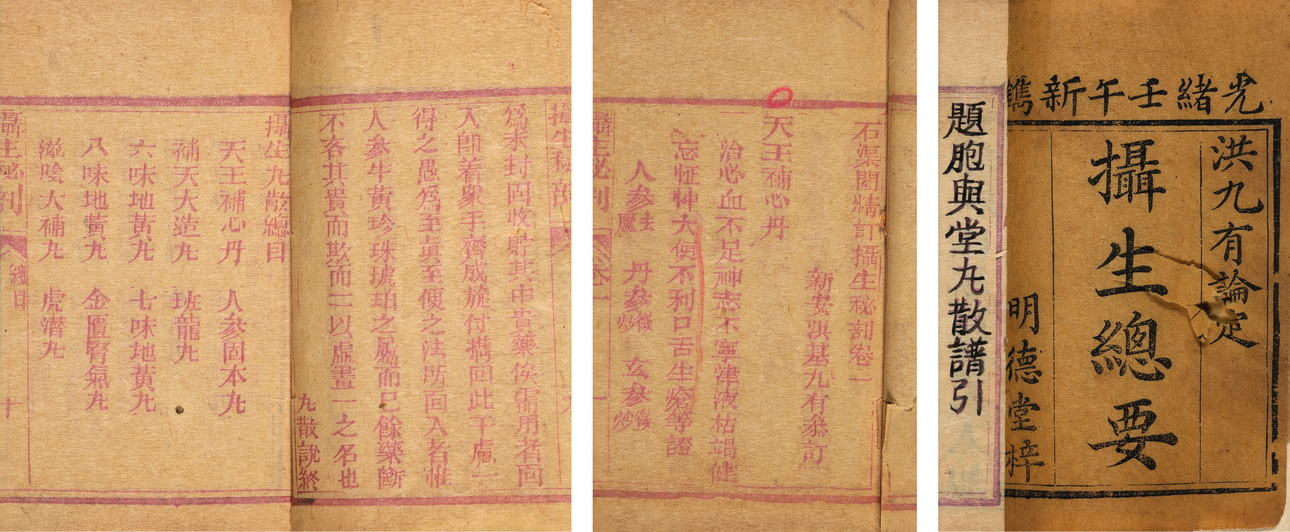 攝生秘剖
爲求封固收貯其中貴藥俟需用者面
入卽着衆手齊成旋付攜回此予處二
得之愚爲至眞至便之法所面入者惟
人參牛黃珍珠琥珀之屬而已餘藥斷
不吝其貴而欺而二以虛晝一之名也
九散說終
攝生九散總目
天王補心丹 人參固本丸
補天大造丸 班龍丸
六味地黃丸 七味地黃丸
八味地黃丸 金匱腎氣丸
滋陰大補丸 虎潛丸
攝生秘剖 總目 十
石渠閣精訂攝生秘剖卷一
新安洪基九有叅訂
天王補心丹
治心血不足神志不寧津液枯竭健
忘怔忡大便不利口舌生瘡等證
人參去蘆 丹參微炒 玄參微炒
攝生秘剖 卷一 一
光緒壬午新鐫
洪九有論定
攝生總要
明德堂梓
題胞與堂九散譜引